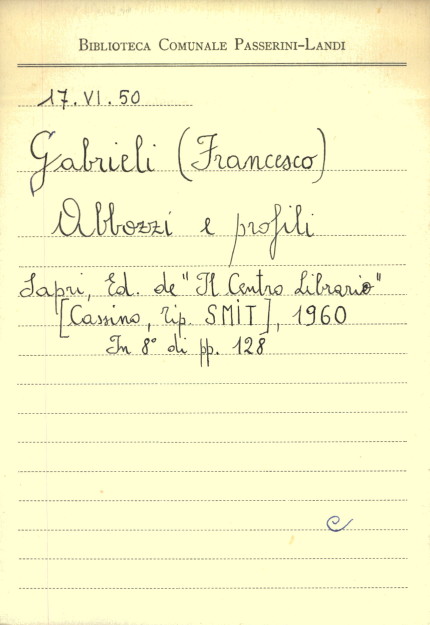 BIBLIOTECA COMUNALE PASSERINI-LANDI
17.VI.50
Gabrieli (Francesco)
Abbozzi e profili
Sapri, Ed. de "Il Centro Librario"
[Cassino, Tip. SMIT], 1960
In 8° di pp. 128
C